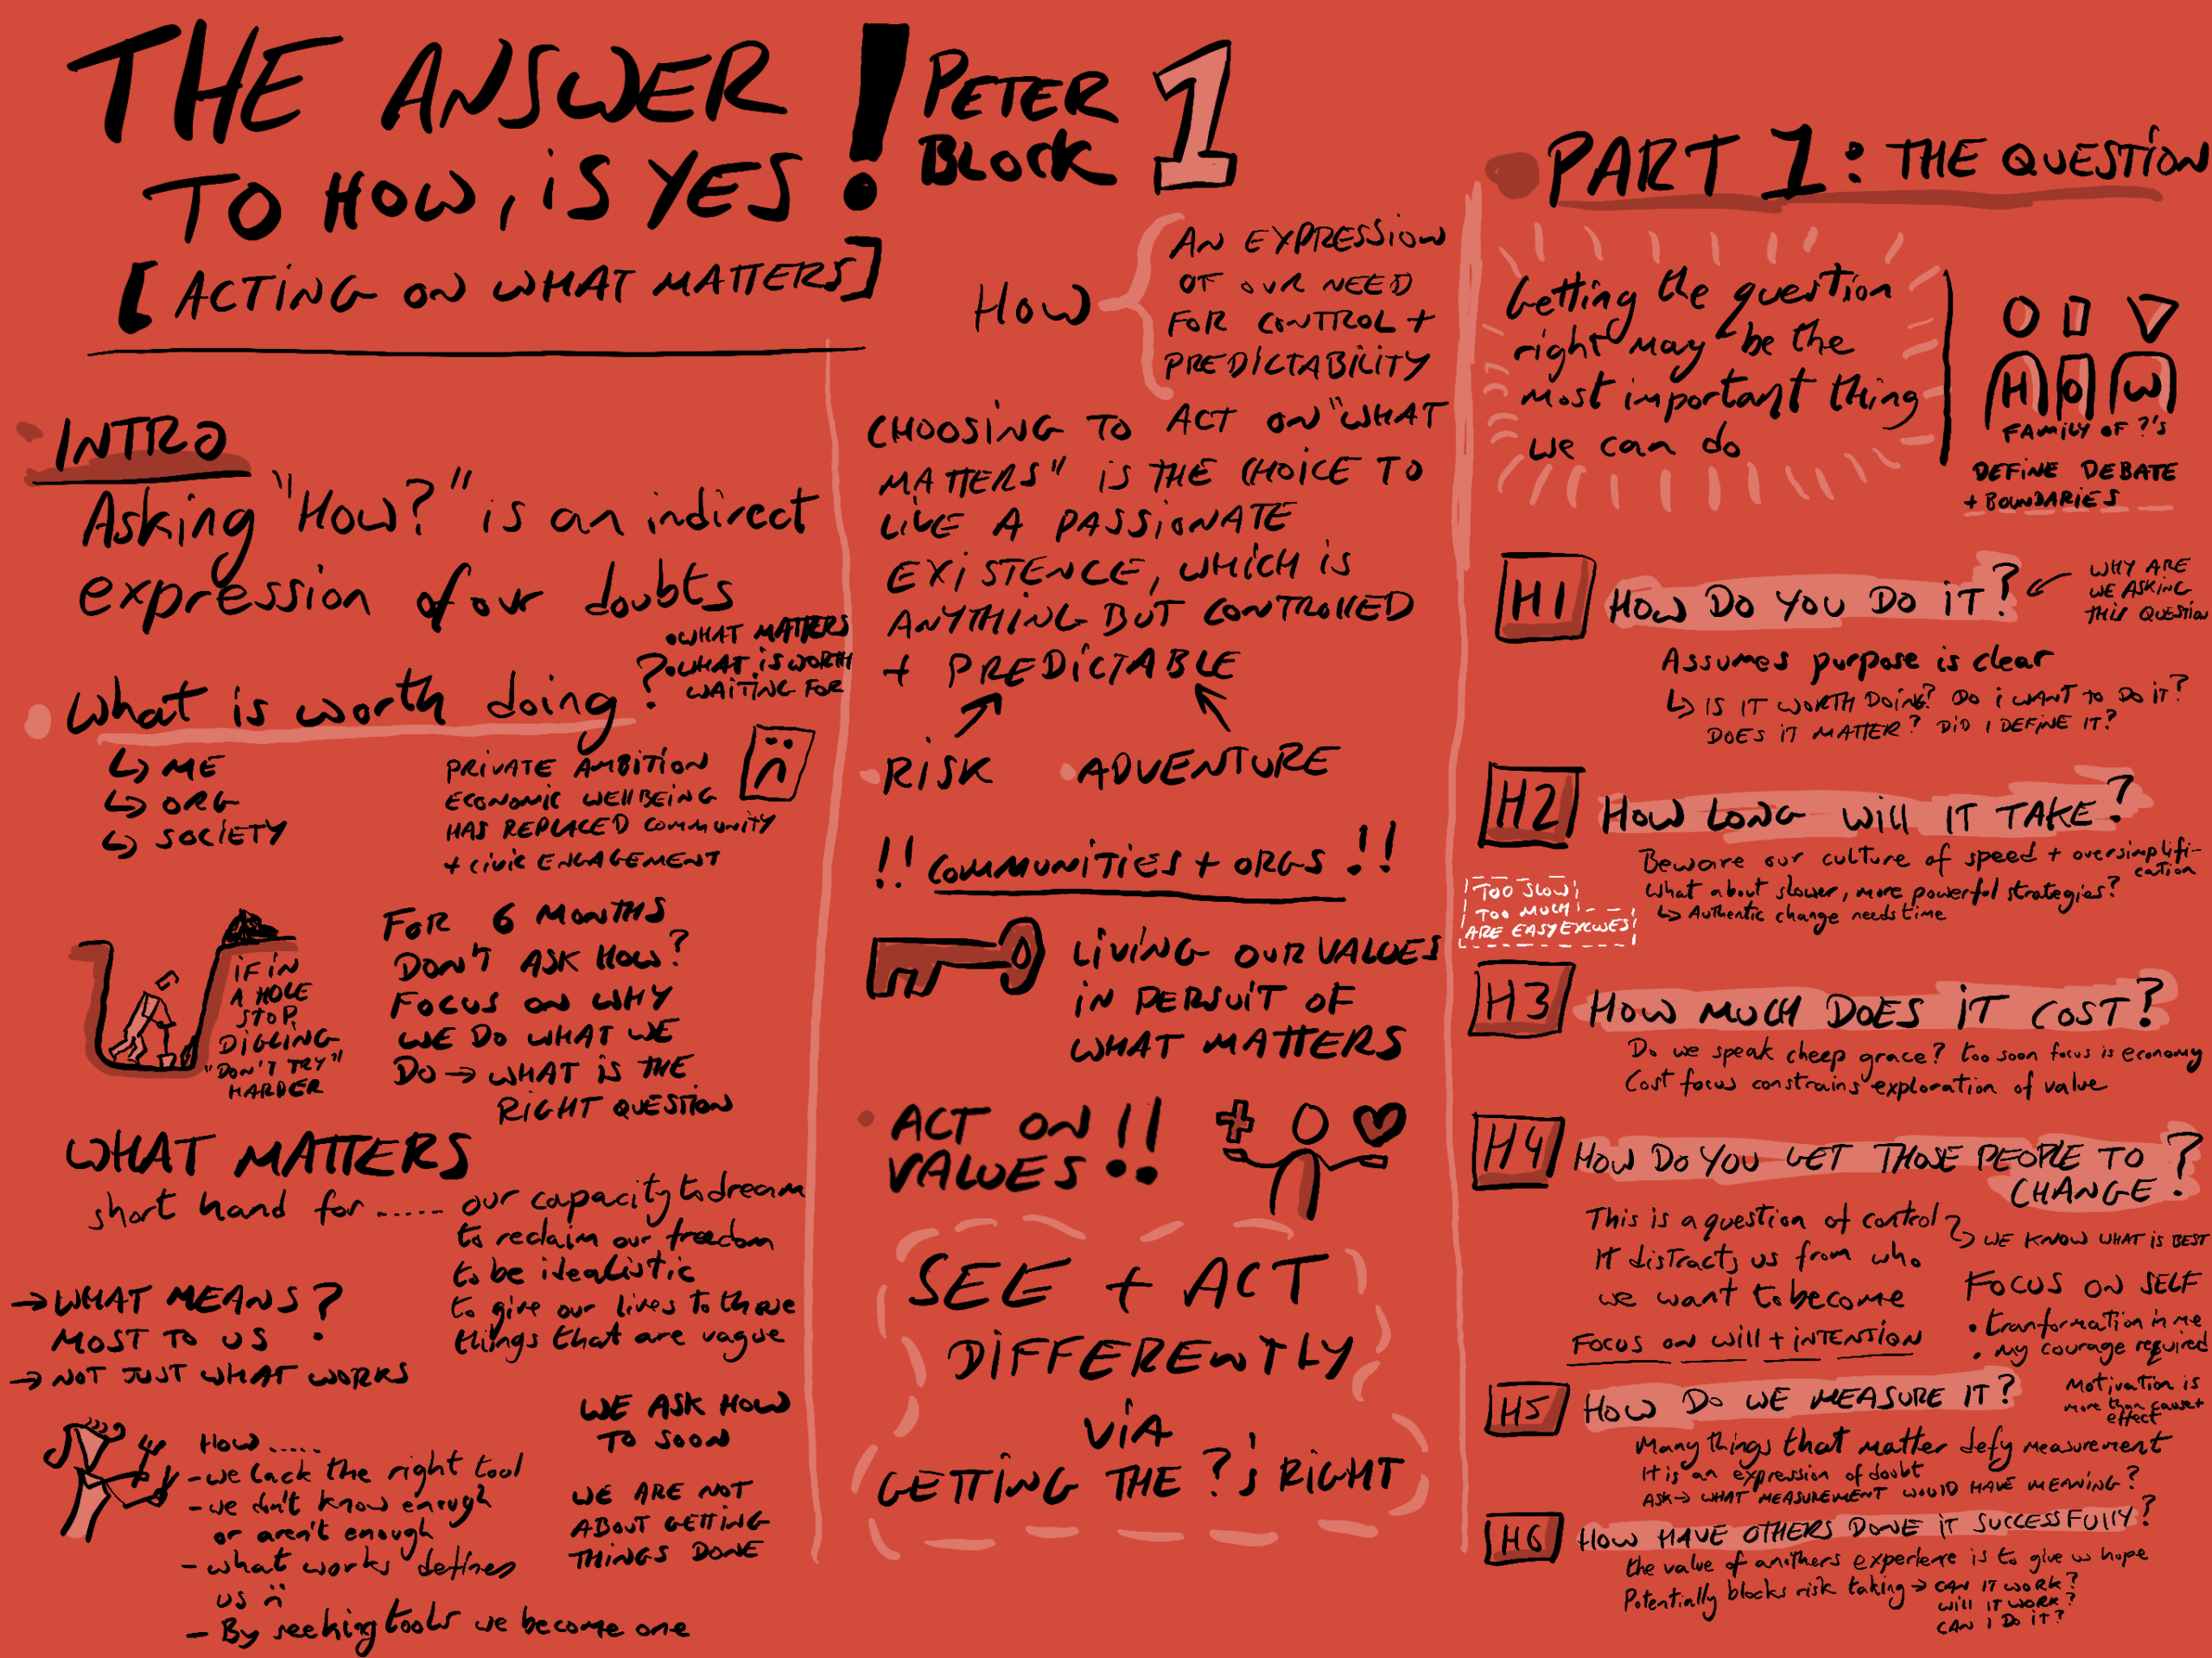 THE ANSWER
TO HOW, IS YES!
[ACTING ON WHAT MATTERS]
PETER
BLOCK
1
INTRO
Asking "How?" is an indirect
expression of our doubts
What is worth doing?
• WHAT MATTERS
• WHAT IS WORTH
WAITING FOR
↳ ME
↳ ORG
↳ SOCIETY
PRIVATE AMBITION
ECONOMIC WELLBEING
HAS REPLACED COMMUNITY
+ CIVIC ENGAGEMENT
IF IN
A HOLE
STOP
DIGGING
"DON'T TRY"
HARDER
FOR 6 MONTHS
DON'T ASK HOW?
FOCUS ON WHY
WE DO WHAT WE
DO → WHAT IS THE
RIGHT QUESTION
WHAT MATTERS
short hand for ..... our capacity to dream
to reclaim our freedom
to be idealistic
to give our lives to those
things that are vague
→ WHAT MEANS
MOST TO US?
→ NOT JUST WHAT WORKS
HOW .....
- we lack the right tool
- we don't know enough
or aren't enough
- what works defines
us
- By seeking tools we become one
WE ASK HOW
TO SOON
WE ARE NOT
ABOUT GETTING
THINGS DONE
HOW
AN EXPRESSION
OF OUR NEED
FOR CONTROL +
PREDICTABILITY
CHOOSING TO ACT ON "WHAT
MATTERS" IS THE CHOICE TO
LIVE A PASSIONATE
EXISTENCE, WHICH IS
ANYTHING BUT CONTROLLED
+ PREDICTABLE
• RISK • ADVENTURE
!! COMMUNITIES + ORGS !!
LIVING OUR VALUES
IN PERSUIT OF
WHAT MATTERS
• ACT ON
VALUES!!
SEE + ACT
DIFFERENTLY
VIA
GETTING THE ?'s RIGHT
PART 1: THE QUESTION
Getting the question
right may be the
most important thing
we can do
HOW
FAMILY OF ?'S
DEFINE DEBATE
+ BOUNDARIES
H1 HOW DO YOU DO IT?
WHY ARE
WE ASKING
THIS QUESTION
Assumes purpose is clear
↳ IS IT WORTH DOING? DO I WANT TO DO IT?
DOES IT MATTER? DID I DEFINE IT?
H2 HOW LONG WILL IT TAKE?
Beware our culture of speed + oversimplifi-
cation
What about slower, more powerful strategies?
↳ Authentic change needs time
TOO SLOW
TOO MUCH
ARE EASY EXCUSES
H3 HOW MUCH DOES IT COST?
Do we speak cheep grace? too soon focus is economy
Cost focus constrains exploration of value
H4 HOW DO YOU GET THOSE PEOPLE TO
CHANGE?
This is a question of control
↳ WE KNOW WHAT IS BEST
It distracts us from who
we want to become
FOCUS ON WILL + INTENTION
FOCUS ON SELF
• tranformation in me
• my courage required
H5 HOW DO WE MEASURE IT?
Motivation is
more than cause +
effect
Many things that matter defy measurement
It is an expression of doubt
ASK → WHAT MEASUREMENT WOULD HAVE MEANING?
H6 HOW HAVE OTHERS DONE IT SUCCESSFULLY?
the value of anothers experience is to give us hope
Potentially blocks risk taking → CAN IT WORK?
WILL IT WORK?
CAN I DO IT?